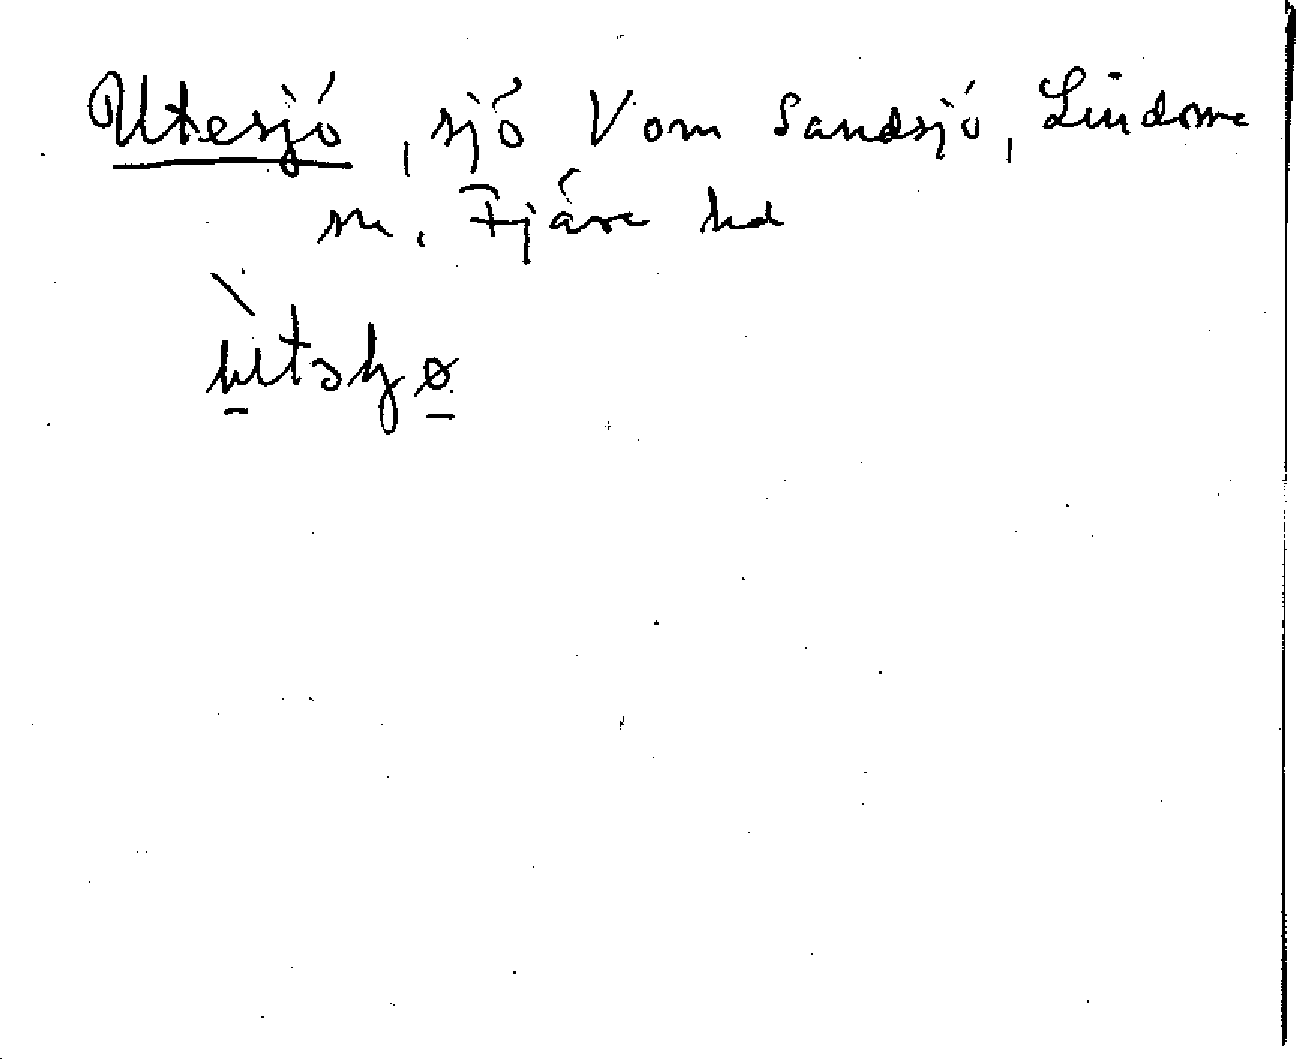 Utesjö, sjö V om Sandsjö, Lindome
sn, Fjäre hd